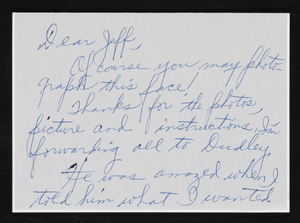 Dear Jeff,
Of course you may photo-
graph this face!
Thanks for the photos,
picture and instructions, I'm
forwarding all to Dudley.
He was amazed when I
told him what I wanted